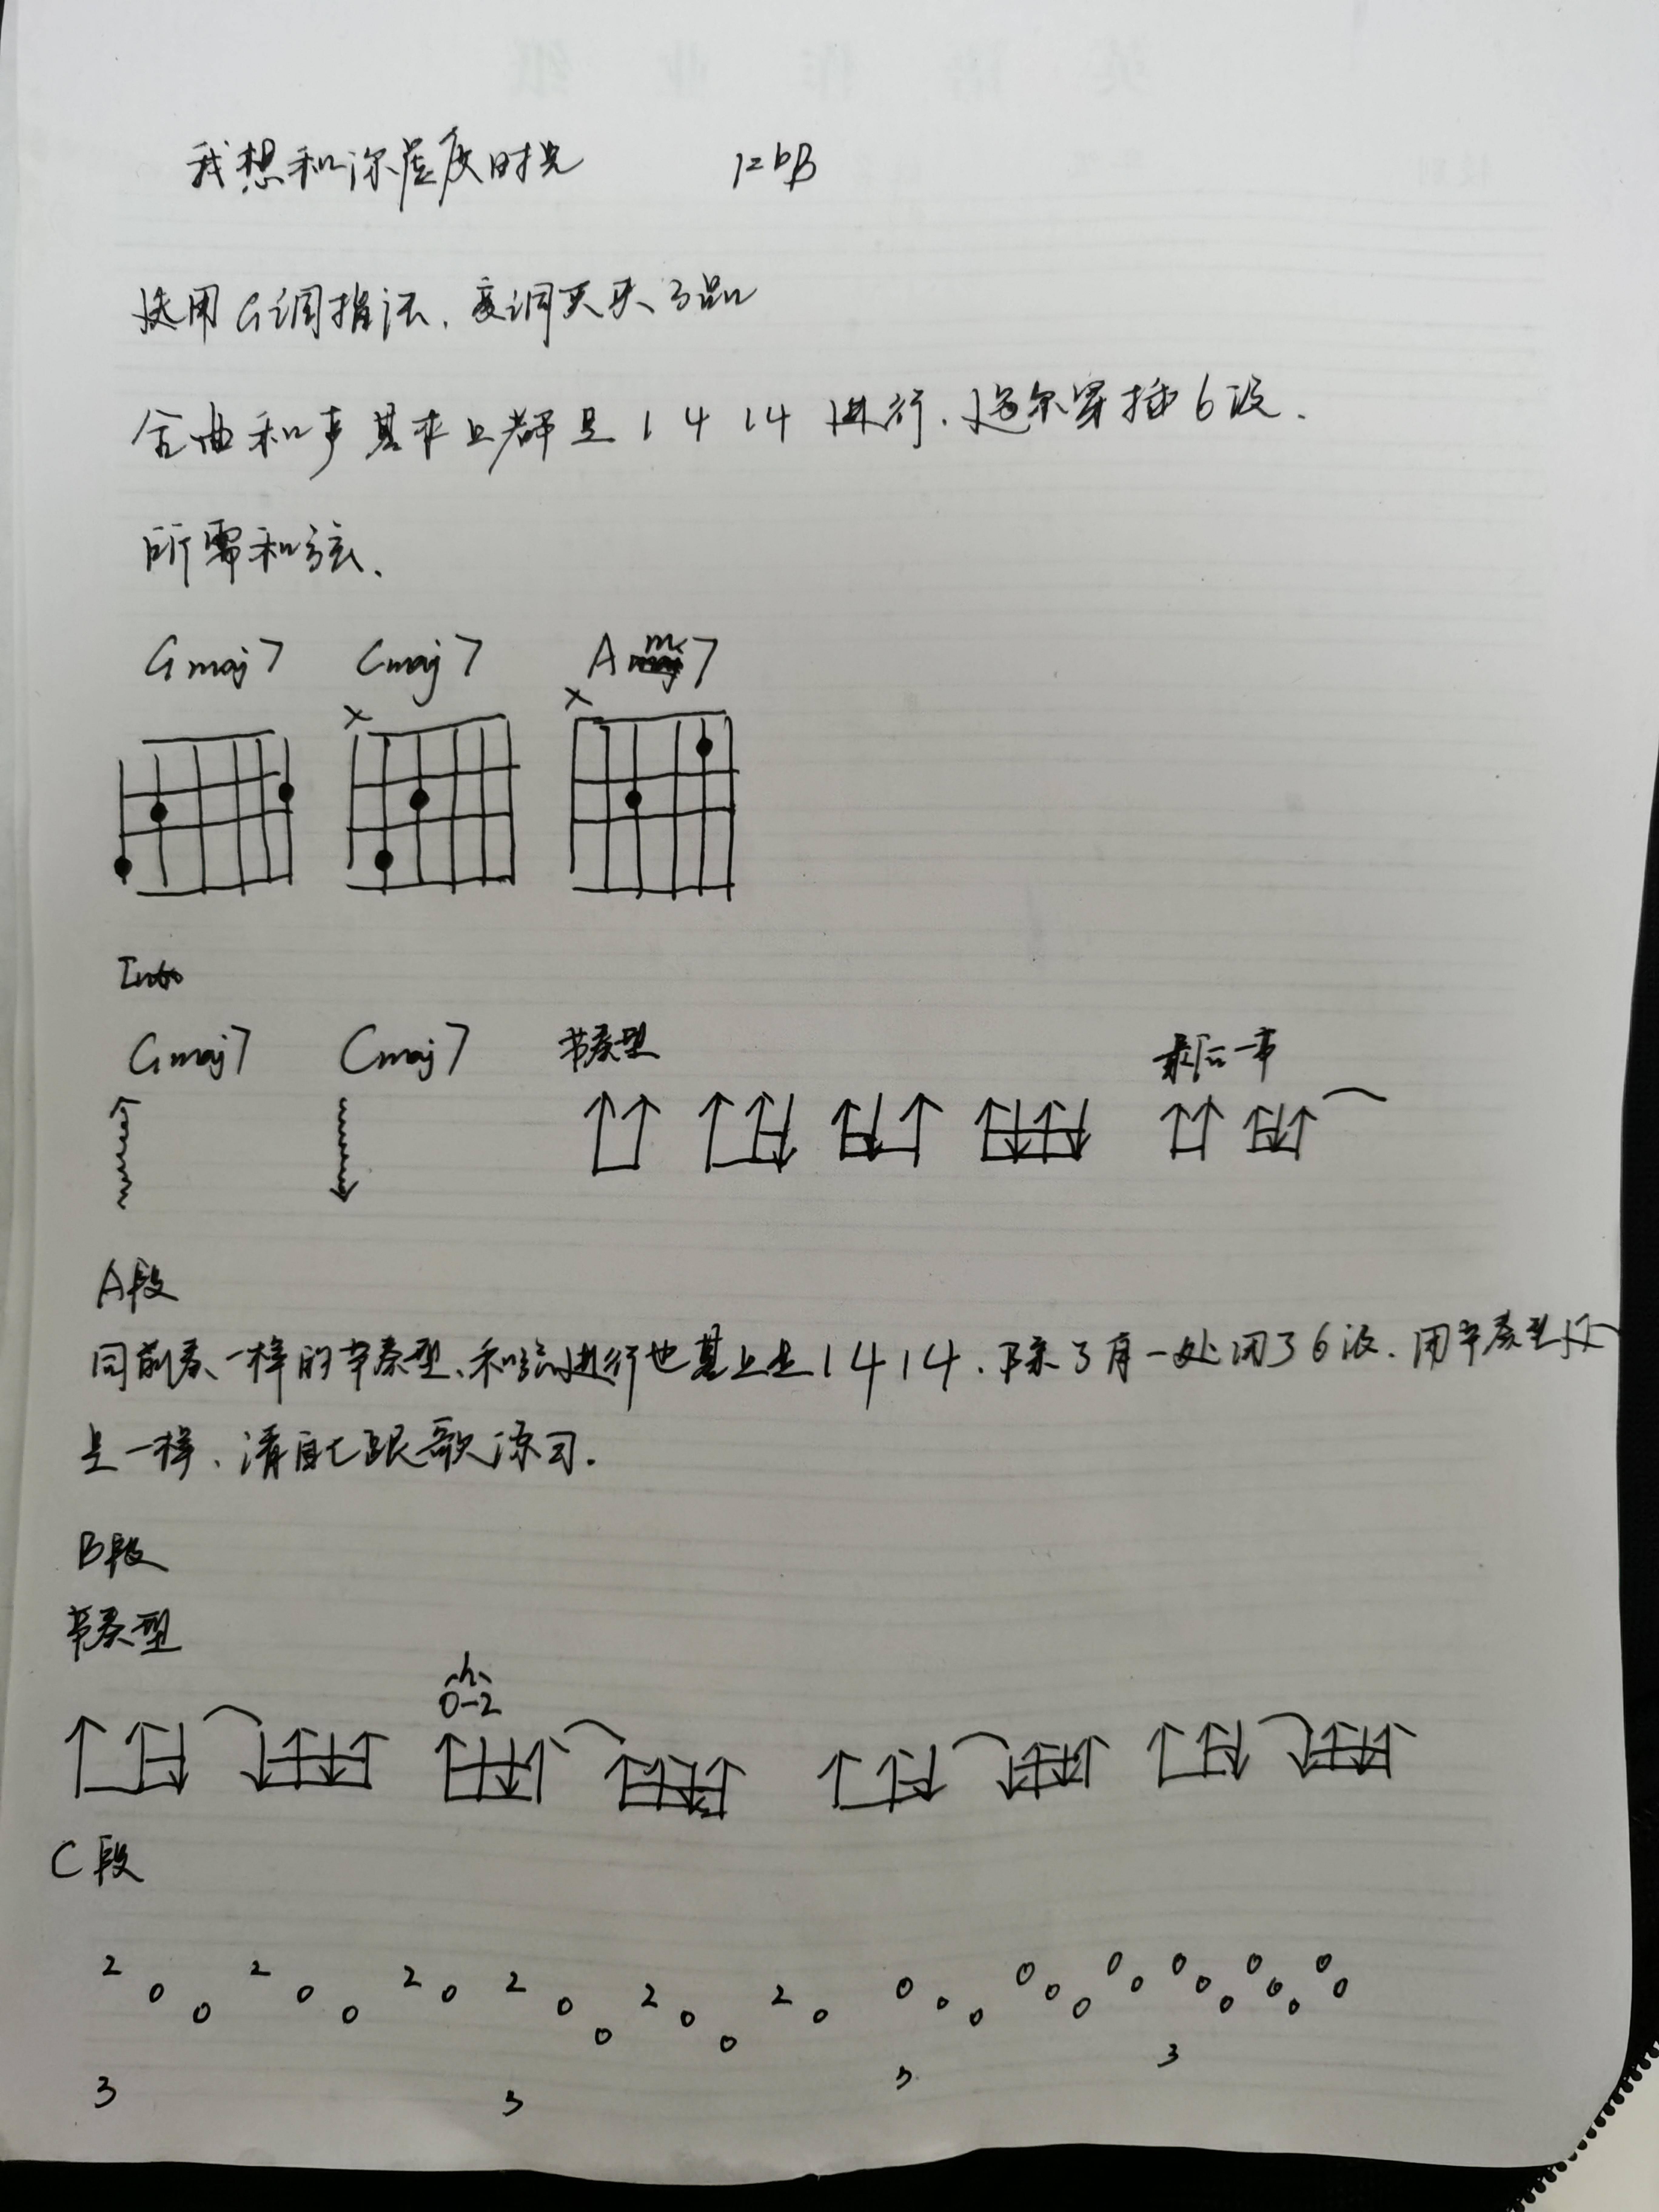 我想和你虚度时光 1=bB
使用G调指法、变调夹夹3品
全曲和声基本上都是1 4 1 4进行.偶尔穿插6级.
所需和弦、
Gmaj7 Cmaj7 Am7
x x
Intro
Gmaj7 Cmaj7 节奏型 最后一节
A段
同前奏一样的节奏型、和弦进行也基上是1 4 1 4.除了有一处用了6级.用节奏型还
是一样、请自己跟歌练习.
B段
节奏型
h
0-2
C段
2 0 0 2 0 0 2 0 2 0 0 2 0 0 2 0 0 0 0 0 0 0 0 0 0 0 0 0 0 0 0 0
3 3 3 3